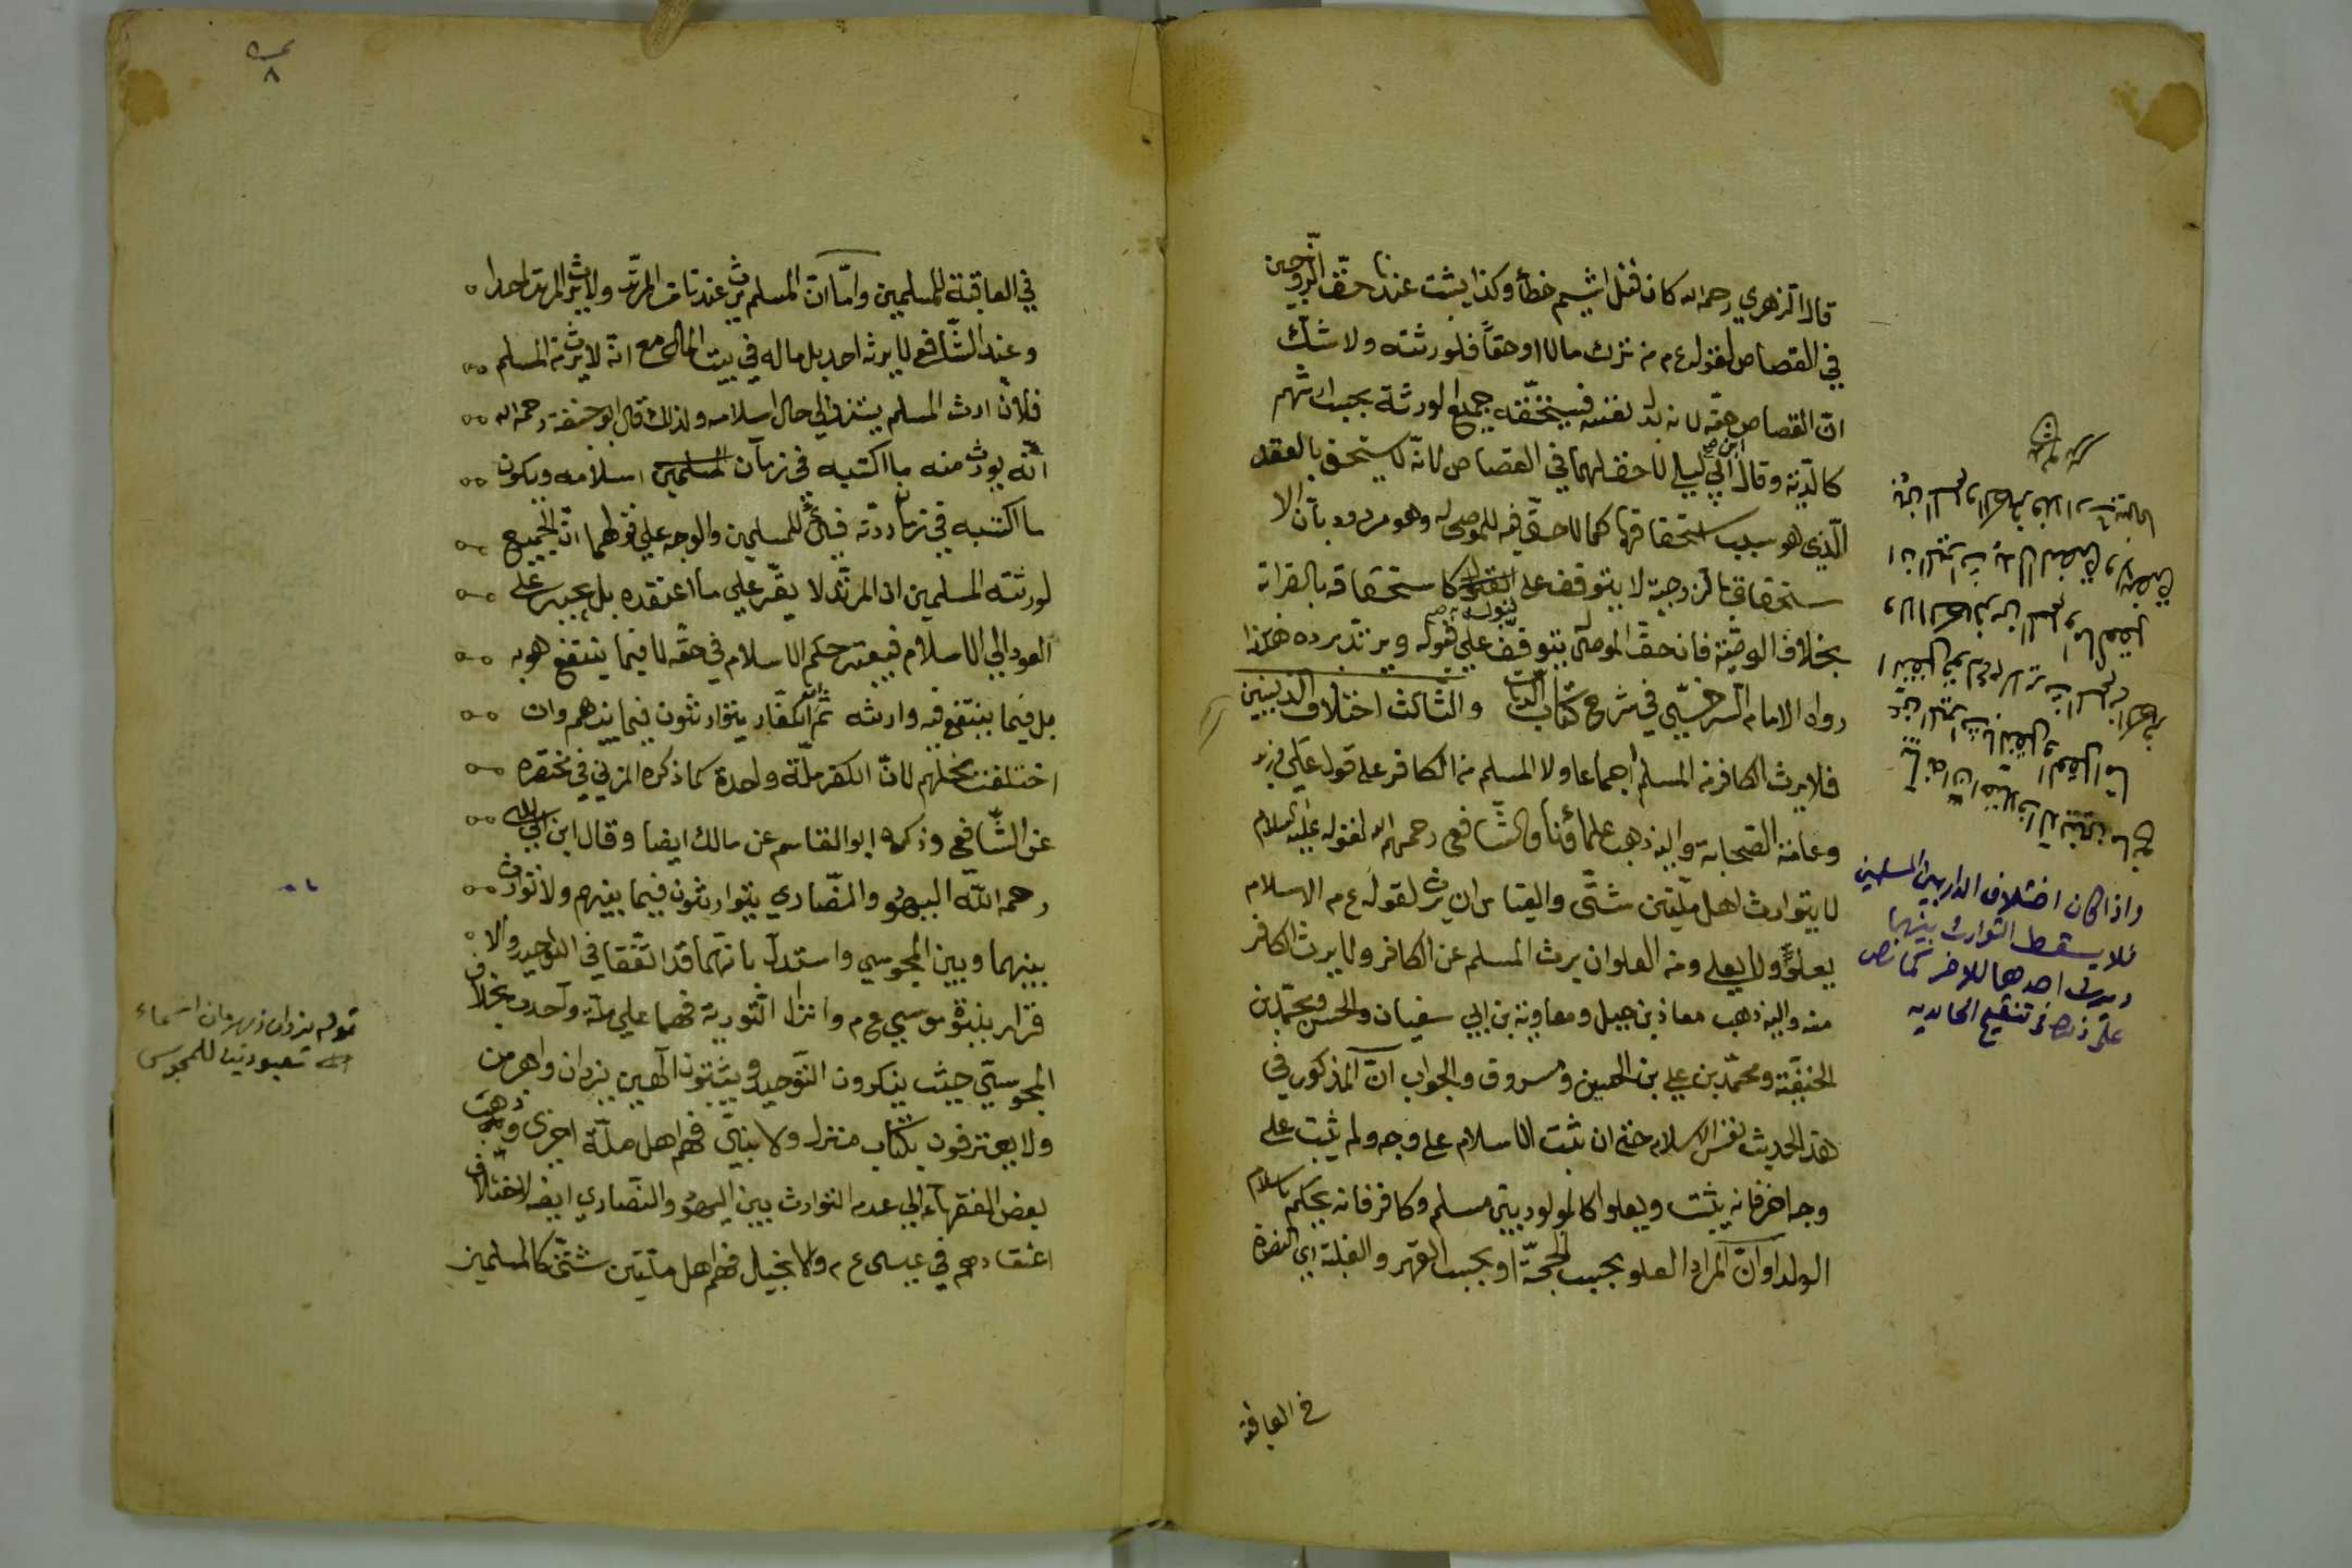 قال الزهري رحمه الله كان قتل اشيم خطأ وكذا يثبت عندنا حق الزوجين
في القصاص لقوله ع م من ترك مالا او حقا فلورثته ولا شك
ان القصاص حقه لانه بدل نفسه فيستحقه جميع الورثة بحسب ارثهم
كالدية وقال ابن ابي ليلى لا حق لهما في القصاص لانه لا يستحق بالعقد
الذي هو سبب استحقاقهما كما لا حق فيه للموصى له وهو مردود بان الا
ستحقاق بالزوجية لا يتوقف على القبول كاستحقاقه بالقرابة
بخلاف الوصية فان حق الموصى له يتوقف على قبوله ويرتد برده هكذا
رواه الامام السرخسي في شرح كتاب الديات والثالث اختلاف الدينين
فلا يرث الكافر من المسلم اجماعا ولا المسلم من الكافر على قول علي وزيد
وعامة الصحابة واليه ذهب علماؤنا والشافعي رحمهم الله لقوله عليه السلام
لا يتوارث اهل ملتين شتى والقياس ان يرث لقوله ع م الاسلام
يعلو ولا يعلى ومن العلو ان يرث المسلم عن الكافر ولا يرث الكافر
منه واليه ذهب معاذ بن جبل ومعاوية بن ابي سفيان والحسن ومحمد بن
الحنفية ومحمد بن علي بن الحسين ومسروق والجواب ان المذكور في
هذا الحديث نفس الاسلام حتى ان ثبت الاسلام على وجه ولم يثبت على
وجه اخر فانه يثبت ويعلو كالمولود بين مسلم وكافر فانه يحكم باسلام
الولد او ان المراد العلو بحسب الحجة او بحسب القهر والغلبة اي النصرة
في العاقبة
واذا كان اختلاف الدار بين المسلمين
فلا يسقط التوارث بينهما
ويرث احدهما للاخر كما نص
على ذلك في تنقيح الحامدية
٨
في العاقبة للمسلمين واما ان المسلم يرث عندنا من المرتد ولا يرث المرتد احدا
وعند الشافعي لا يرثه احد بل ماله في بيت المال مع انه لا يرث من المسلم
فلان ارث المسلم يستند الى حال اسلامه ولذلك قال ابو حنيفة رحمه الله
انه يورث منه ما اكتسبه في زمان المسلمين اسلامه ويكون
ما اكتسبه في زمان ردته فيئ للمسلمين والوجه على قولهما ان الجميع
لورثته المسلمين ان المرتد لا يقر على ما اعتقده بل يجبر على
العود الى الاسلام فيعتبر حكم الاسلام في حقه لا فيما ينتفع هو به
بل فيما ينتفع به وارثه ثم ان الكفار يتوارثون فيما بينهم وان
اختلفت نحلهم لان الكفر ملة واحدة كما ذكره المزني في مختصره
عن الشافعي وذكره ابو القاسم عن مالك ايضا وقال ابن ابي ليلى
رحمه الله اليهود والنصارى يتوارثون فيما بينهم ولا توارث
بينهما وبين المجوسي واستدل بانهما قد اتفقا في التوحيد والا
قرار بنبوة موسى ع م وانزال التورية فهما على ملة واحدة بخلاف
المجوسي حيث ينكرون التوحيد ويثبتون الهين يزدان واهرمن
ولا يعترفون بكتاب منزل ولا بنبي فهم اهل ملة اخرى وذهب
بعض الفقهاء الى عدم التوارث بين اليهود والنصارى ايضا لاختلاف
اعتقادهم في عيسى ع م والانجيل فهم اهل ملتين شتى كالمسلمين